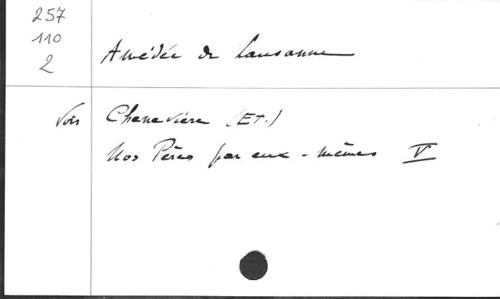 257
110
2
Amédée de Lausanne
Voir Chenevière (Et.)
Nos Pères par eux-mêmes V